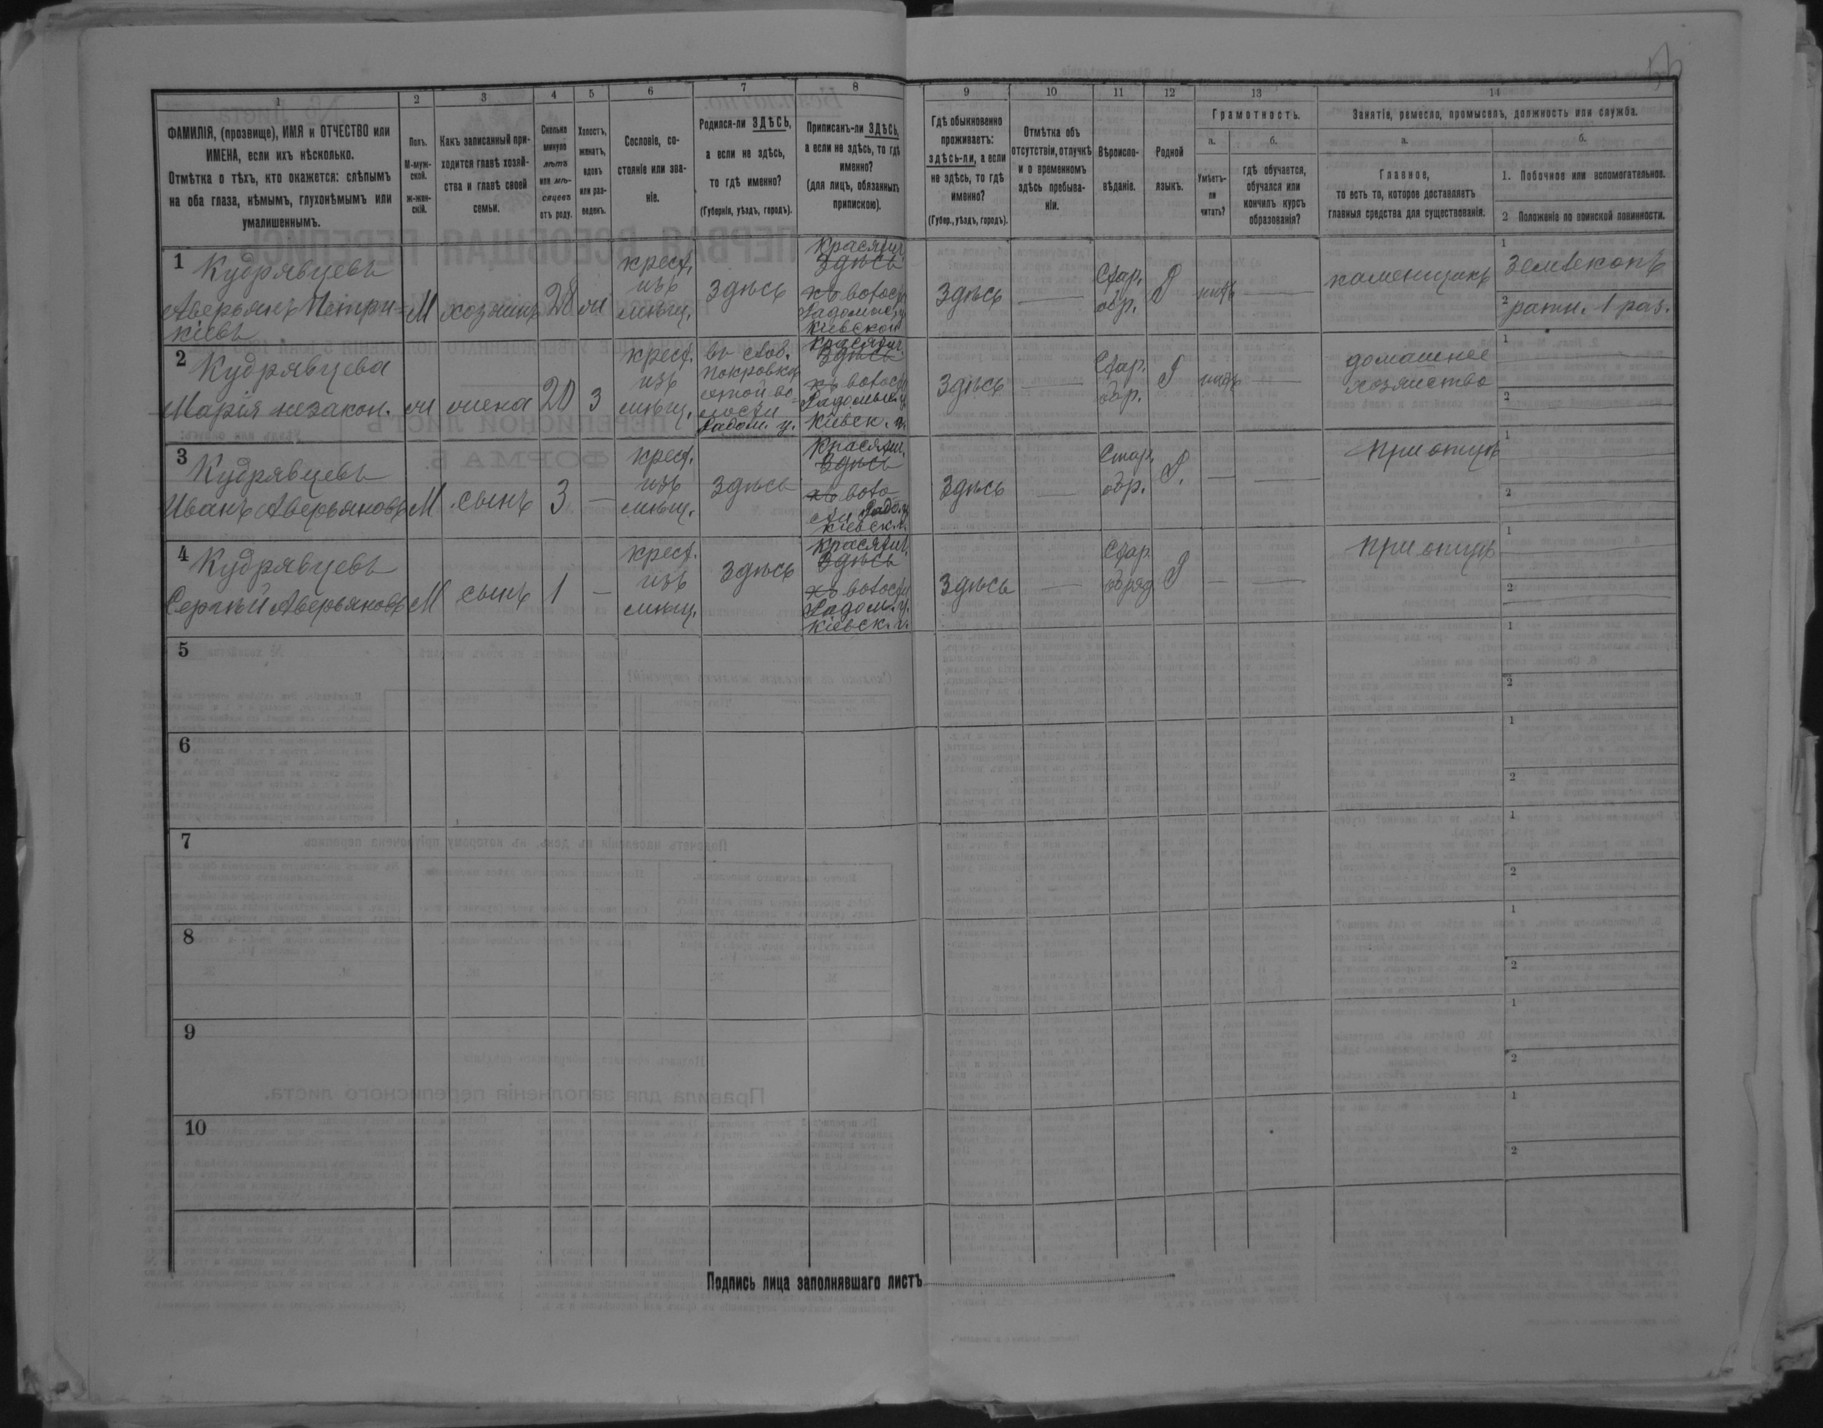 1 2 3 4 5 6 7 8 9 10 11 12 13 14
ФАМИЛІЯ, (прозвище), ИМЯ и ОТЧЕСТВО или
ИМЕНА, если ихъ нѣсколько.
Отмѣтка о тѣхъ, кто окажется: слѣпымъ
на оба глаза, нѣмымъ, глухонѣмымъ или
умалишеннымъ.
Полъ.
М-муж-
ской.
ж-жен-
скій.
Какъ записанный при-
ходится главѣ хозяй-
ства и главѣ своей
семьи.
Сколько
минуло
лѣтъ
или мѣ-
сяцевъ
отъ роду.
Холостъ,
женатъ,
вдовъ
или раз-
веденъ.
Сословіе, со-
стояніе или зва-
ніе.
Родился-ли ЗДѢСЬ,
а если не здѣсь,
то гдѣ именно?
(Губернія, уѣздъ, городъ).
Приписанъ-ли ЗДѢСЬ,
а если не здѣсь, то гдѣ
именно?
(для лицъ, обязанныхъ
припискою).
Гдѣ обыкновенно
проживаетъ:
здѣсь-ли, а если
не здѣсь, то гдѣ
именно?
(Губер., уѣздъ, городъ).
Отмѣтка объ
отсутствіи, отлучкѣ
и о временномъ
здѣсь пребыва-
ніи.
Вѣроиспо-
вѣданіе.
Родной
языкъ.
Грамотность.
а.
Умѣетъ-
ли
читать?
б.
гдѣ обучается,
обучался или
кончилъ курсъ
образованія?
Занятіе, ремесло, промыселъ, должность или служба.
а.
Главное,
то есть то, которое доставляетъ
главныя средства для существованія.
б.
1. Побочное или вспомогательное.
2 Положеніе по воинской повинности.
1 Кудрявцевъ
Аверьянъ Патри-
кіевъ
М хозяинъ 28 ж
крест.
изъ
мѣщ.
здѣсь
Красят.
Здѣсь
къ волост
Радомыс. у.
Кіевской
здѣсь
Стар.
обр.
Р
каменщикъ
1 землекопъ
2 ратн. 1 раз.
2 Кудрявцева
Марія незакон.
ж жена 20 з
крест.
изъ
мѣщ.
въ
Покровской
Радом. у.
Красят.
Здѣсь
къ волост
Радомыс. у.
Кіевск. г.
здѣсь
Стар.
обр.
Р
домашнее
хозяйство
1
2
3 Кудрявцевъ
Иванъ Аверьяновъ
М сынъ 3 —
крест.
изъ
мѣщ.
здѣсь
Красят.
Здѣсь
къ воло-
сти Радом. у.
Кіевск. г.
здѣсь
Стар.
обр.
Р.
при отцѣ
1
2
4 Кудрявцевъ
Сергѣй Аверьяновъ
М сынъ 1 —
крест.
изъ
мѣщ.
здѣсь
Красят.
Здѣсь
къ волости
Радом. у.
Кіевск. г.
здѣсь
Стар.
обряд.
Р
при отцѣ
1
2
5
1
2
6
1
2
7
1
2
8
1
2
9
1
2
10
1
2
Подпись лица заполнявшаго листъ